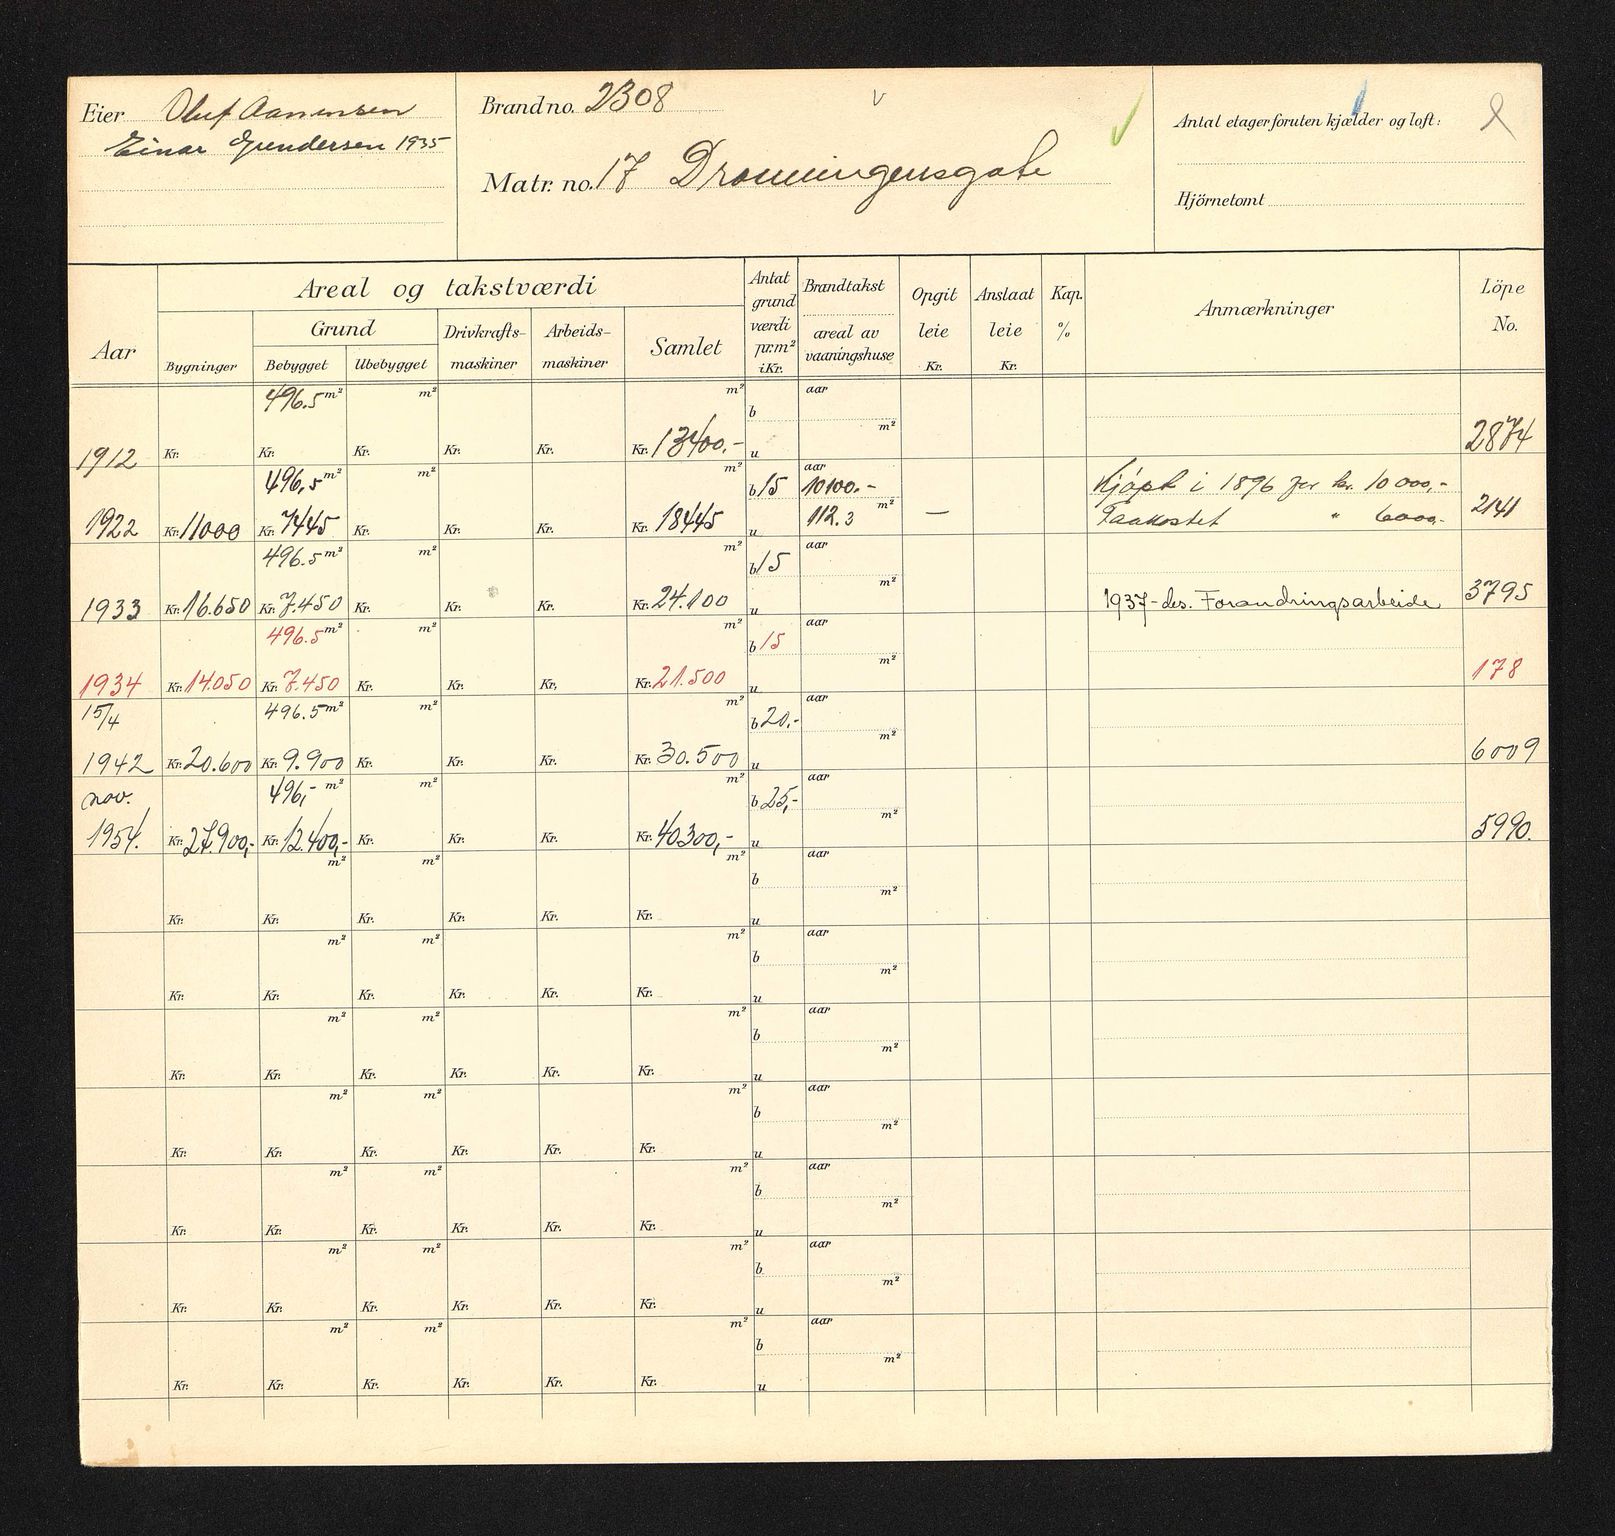 Eier Oluf Aanensen
Einar Gundersen 1935
Brandno. 2308
v
Matr. no. 17 Dronningensgate
Antal etager foruten kjælder og loft:
Hjörnetomt
Aar
Areal og takstværdi
Bygninger
Grund
Bebygget Ubebygget
Drivkrafts-
maskiner
Arbeids-
maskiner
Samlet
Antat
grund
værdi
pr.m²
i Kr.
Brandtakst
areal av
vaaningshuse
Opgit
leie
Kr.
Anslaat
leie
Kr.
Kap.
%
Anmærkninger
Löpe
No.
496.5 m² m² m² b aar
m²
1912 Kr. Kr. Kr. Kr. Kr. Kr. 13400,- u 2874
496,5 m² m² m² b 15 aar 10100.- Kjøpt i 1896 for kr. 10000,-
m²
1922 Kr. 11000 Kr. 7445 Kr. Kr. Kr. Kr. 18445 u 112.3 — Paakostet " 6000,- 2141
496.5 m² m² m² b 15 aar
m²
1933 Kr. 16.650 Kr. 7.450 Kr. Kr. Kr. Kr. 24.100 u 1937-des. Forandringsarbeide 3795
496.5 m² m² m² b 15 aar
m²
1934 Kr. 14.050 Kr. 7.450 Kr. Kr. Kr. Kr. 21.500 u 178
15/4 496.5 m² m² m² b 20,- aar
m²
1942 Kr. 20.600 Kr. 9.900 Kr. Kr. Kr. Kr. 30.500 u 6009
nov. 496,- m² m² m² b 25,- aar
m²
1954. Kr. 27.900,- Kr. 12.400,- Kr. Kr. Kr. Kr. 40300,- u 5990.
m² m² m² b aar
m²
Kr. Kr. Kr. Kr. Kr. Kr. u
m² m² m² b aar
m²
Kr. Kr. Kr. Kr. Kr. Kr. u
m² m² m² b aar
m²
Kr. Kr. Kr. Kr. Kr. Kr. u
m² m² m² b aar
m²
Kr. Kr. Kr. Kr. Kr. Kr. u
m² m² m² b aar
m²
Kr. Kr. Kr. Kr. Kr. Kr. u
m² m² m² b aar
m²
Kr. Kr. Kr. Kr. Kr. Kr. u
m² m² m² b aar
m²
Kr. Kr. Kr. Kr. Kr. Kr. u